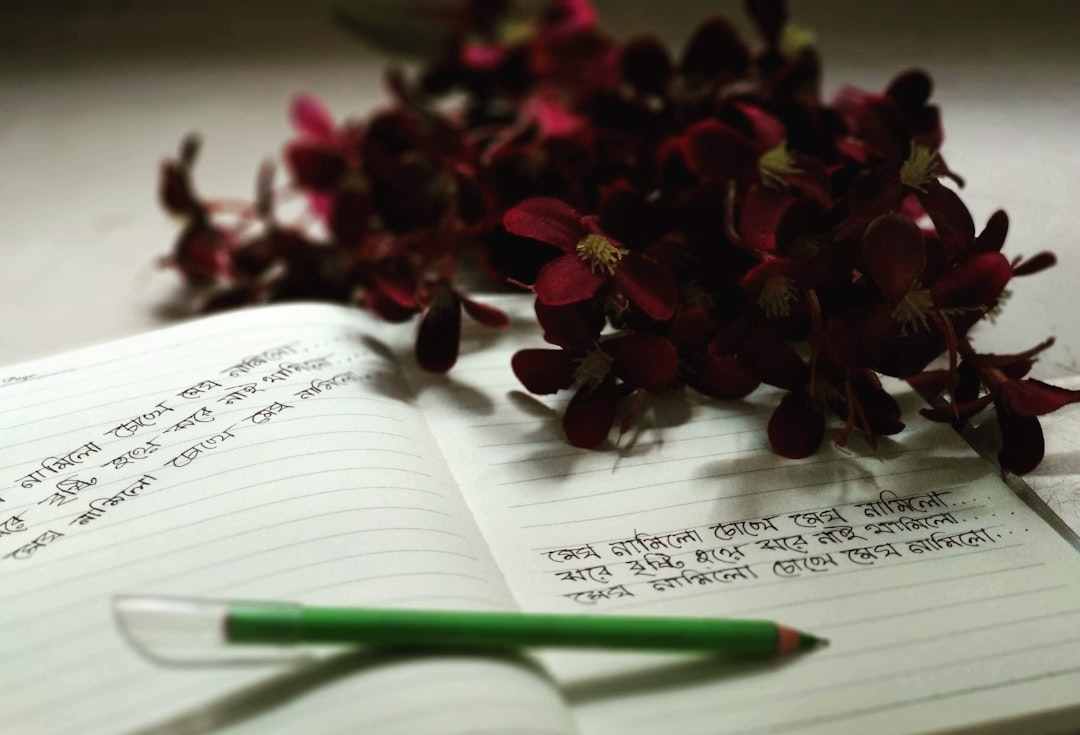 নামিলো চোখে মেঘ নামিলো....
বৃষ্টি হয়ে ঝরে নাই থামিলো....
মেঘ নামিলো চোখে মেঘ নামিলো...
মেঘ নামিলো চোখে মেঘ নামিলো....
ঝরে বৃষ্টি হয়ে ঝরে নাই থামিলো...
মেঘ নামিলো চোখে মেঘ নামিলো...